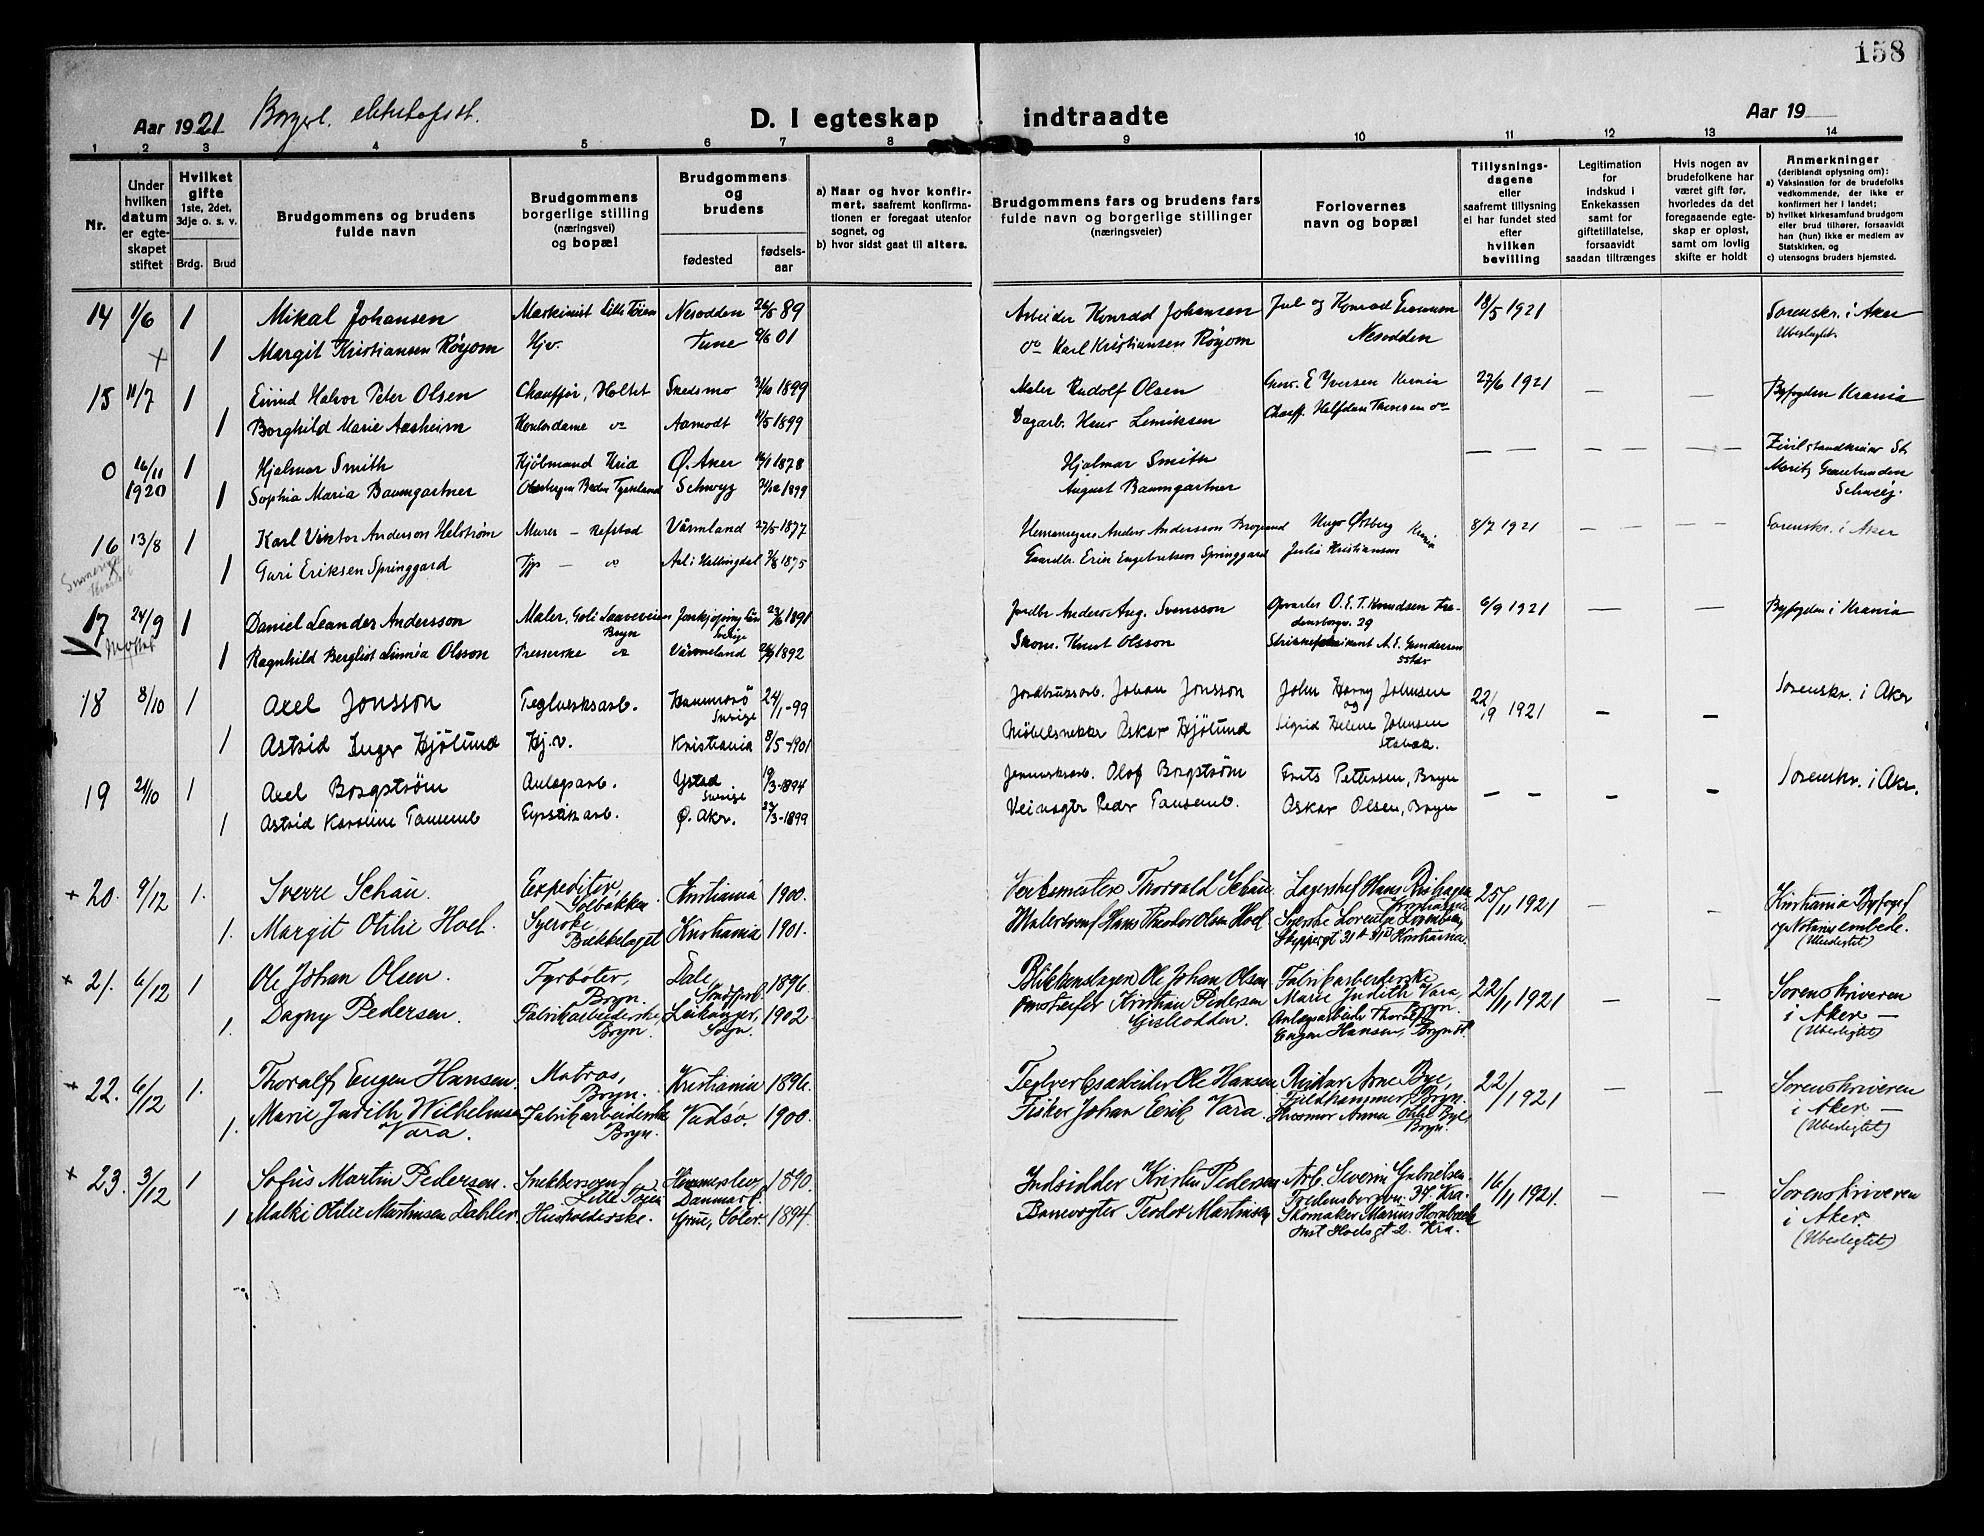 158
Aar 1921 Borgerl.
D. I egteskap indtraadte
Aar 19
1 2 3 4 5 6 7 8 9 10 11 12 13 14
Nr.
Under
hvilken
datum
er egte-
skapet
stiftet
Hvilket
gifte
1ste, 2det,
3dje o. s. v.
Brdg. Brud
Brudgommens og brudens
fulde navn
Brudgommens
borgerlige stilling
(næringsvei)
og bopæl
Brudgommens
og
brudens
fødested
fødsels-
aar
a) Naar og hvor konfir-
mert, saafremt konfirma-
tionen er foregaat utenfor
sognet, og
b) hvor sidst gaat til alters.
Brudgommens fars og brudens fars
fulde navn og borgerlige stillinger
(næringsveier)
Forlovernes
navn og bopæl
Tillysnings-
dagene
eller
saafremt tillysning
ei har fundet sted
efter
hvilken
bevilling
Legitimation
for
indskud i
Enkekassen
samt for
giftetillatelse,
forsaavidt
saadan tiltrænges
Hvis nogen av
brudefolkene har
været gift før,
hvorledes da det
foregaaende egte-
skap er opløst,
samt om lovlig
skifte er holdt
Anmerkninger
(deriblandt oplysning om):
a) Vaksinstion for de brudefolks
vedkommende, der ikke er
konfirmert her i landet;
b) hvilket kirkesamfund brudgom
eller brud tilhører, forsaavidt
han (hun) ikke er medlem av
Statskirken, og
c) utensogns bruders hjemsted.
14 1/6 1 Mikal Johansen Maskinist Lille Tøien Nesodden 26/5 89 Arbeider Konrad Johansen Jul og Konrad 18/5 1921 Sorenskr. i Aker
1 Margit Kristiansen Røyom Hjv. Tune 9/6 01 do Karl Kristiansen Røyom Nesodden Ubeslegtet.
15 11/7 1 Eivind Halvor Peter Olsen Chauffør, Holtet Skedsmo 1899 Maler Rudolf Olsen E Iversen Krania 27/6 1921 — — Byfogden Krania
1 Borghild Marie Aasheim Kontordame do Aamodt 11/5 1899 Dagarb. Henr Chauff. Halfdan Thoresen do
0 16/11 1 Hjalmar Smith Kria Ø. Aker 16/1 1878 Hjalmar Smith — — — —
1920 1 Sophia Maria Baumgartner Baden Tyskland Schwyz 1899 August Baumgartner Moritz Graubunden
Schweiz.
16 13/8 1 Karl Viktor Anderson Helstrøm Murer — Refstad Värmland 27/5 1877 Anders Andersson Hugo Østberg Krania 8/7 1921 — — — Sorenskr. i Aker
1 Guri Eriksen Springgard Tjp — do Aal i Hallingdal 7/8 1875 Gaardbr. Erik Engebretsen Springgard Julia Kristiansen
17 24/9 1 Daniel Leander Andersson Maler, Jonkjøping 1891 Jordbr Anders Aug. Svensson Opvarter O. E. T. Knudsen 6/9 1921 — — Byfogden i Krania
Bryn Sverige 29
1 Ragnhild Linnéa Olsson Presserske do Värmeland 1892 Skom. Knut Olsson A. E. Gundersen
18 8/10 1 Axel Jonsson Teglverksarb. Hammarö 24/1-99 Jordbruksarb. Johan Jonsson John Harry Johnsen 22/9 1921 — — Sorenskr. i Aker
Sverige og
1 Astrid Inger Hjölund Hj.v. Kristiania 8/5-1901 Møbelsnekker Oskar Hjölund Sigrid Helene Johnsen
Stabæk.
19 21/10 1 Axel Borgstrøm Anlægsarb. Ystad 19/3-1894 Jernverksarb. Olof Borgstrøm Frits Pettersen, Bryn — — — — Sorenskr. i Aker.
Sverige
1 Astrid Karoline Tansemb arb. Ø. Aker. 23/3-1899 Veivogter Peder Tansemb. Oskar Olsen, Bryn
+ 20. 9/12 1. Sverre Schau. Expeditør, Kristiania 1900. Verksmester Thorvald Schau Lagerchef Hans 25/11 1921 — — Kristiania Byfoged
Solbakken. Kristiania
1. Margit Otilie Hoel. Syerske, Kristiania 1901. Malersvend Hans Theodor Olsen Hoel Syerske og Notarius embede.
Bækkelaget Skippergt 31 Kristiania. (Ubeslegtet)
+ 21. 6/12 1 Ole Johan Olsen. Fyrbøter, Dale, 1896. Blikkenslager Ole Johan Olsen Fabrikarbeiderske 22/11 1921 — — Sorenskriveren
Bryn. Søndfjord. Marie Judith Vara,
1. Dagny Pedersen. Fabrikarbeiderske, Leikanger, 1902. Kristian Pedersen Bryn. i Aker —
Bryn. Sogn. Anlægsarbeider Thoralf
Eugen Hansen, Bryn st. (Ubeslegtet)
+ 22. 6/12 1. Thoralf Eugen Hansen. Matros, Kristiania 1896. Teglverksarbeider Ole Hansen Arne Bye, 22/11 1921 — — Sorenskriveren
Bryn. Fjeldhammer, Bryn.
1. Marie Judith Wilhelmsen Fabrikarbeiderske Vadsø. 1900. Fisker Johan Erik Vara. Husmor Anna Otilie Bye, i Aker —
Vara. Bryn. Bryn. (Ubeslegtet)
+ 23. 3/12 1 Sofus Martin Pedersen. Snekkersvend Himmerslev 1890. Indsidder Kristen Pedersen Arb. Severin Gabrielsen 16/11 1921. — — Sorenskriveren
Lille Tøien Danmark Fredensborgvn. 39. Kra.
1 Malki Otilie Martinsen Dahler. Husholderske. Grue, Solør. 1894. Banevogter Teodor Martinsen Skomaker Marius Hornbæck i Aker.
Kra. (Ubeslegtet)